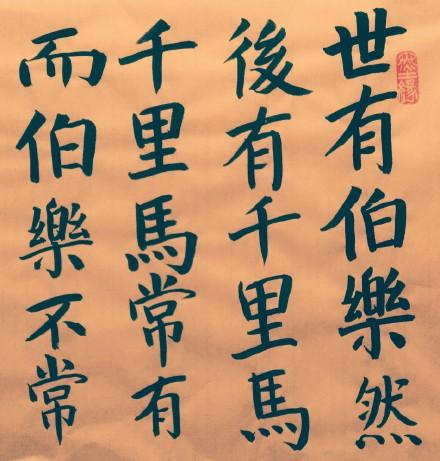 世有伯樂然
後有千里馬
千里馬常有
而伯樂不常